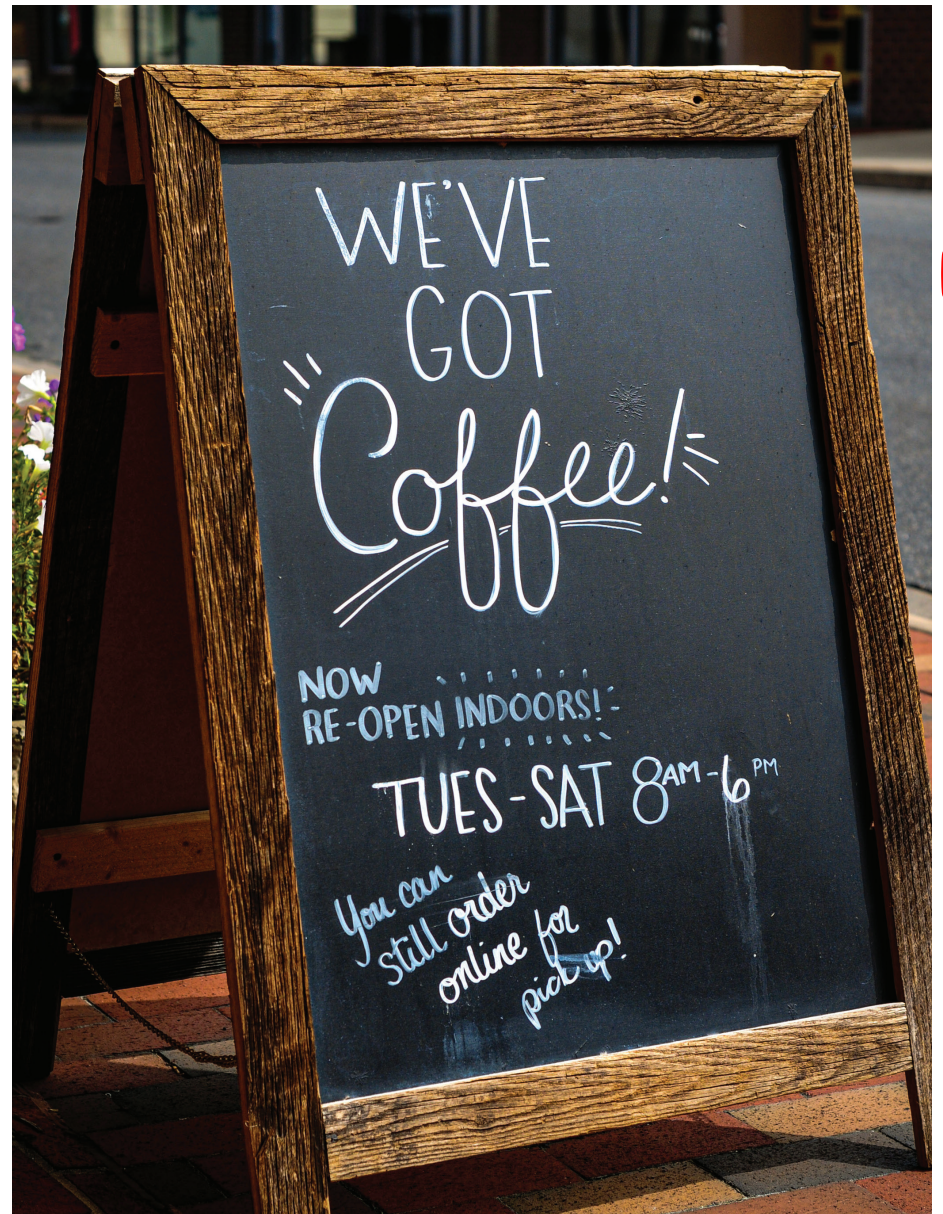 WE'VE
GOT
Coffee!
NOW
RE-OPEN INDOORS!
TUES-SAT 8AM-6PM
You can
still order
online for
pick up!